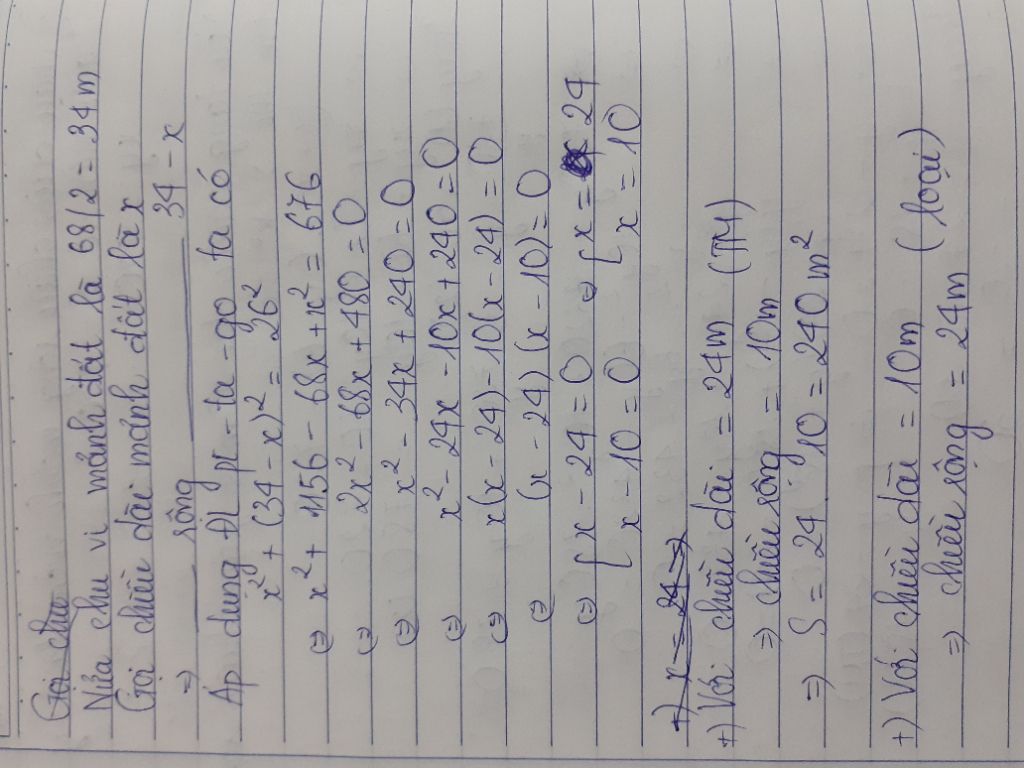 Gọi chu
Nửa chu vi mảnh đất là 68/2 = 34 m
Gọi chiều dài mảnh đất là x
=> rộng 34 - x
Áp dụng ĐL pi-ta-go ta có
x² + (34 - x)² = 26²
(=) x² + 1156 - 68x + x² = 676
(=) 2x² - 68x + 480 = 0
(=) x² - 34x + 240 = 0
(=) x² - 24x - 10x + 240 = 0
(=) x(x - 24) - 10(x - 24) = 0
(=) (x - 24)(x - 10) = 0
(=) [ x - 24 = 0 (=) [ x = 24
[ x - 10 = 0 [ x = 10
+) x = 24 =>
+) Với chiều dài = 24m (TM)
=> chiều rộng = 10m
=> S = 24 . 10 = 240 m²
+) Với chiều dài = 10m (loại)
=> chiều rộng = 24m